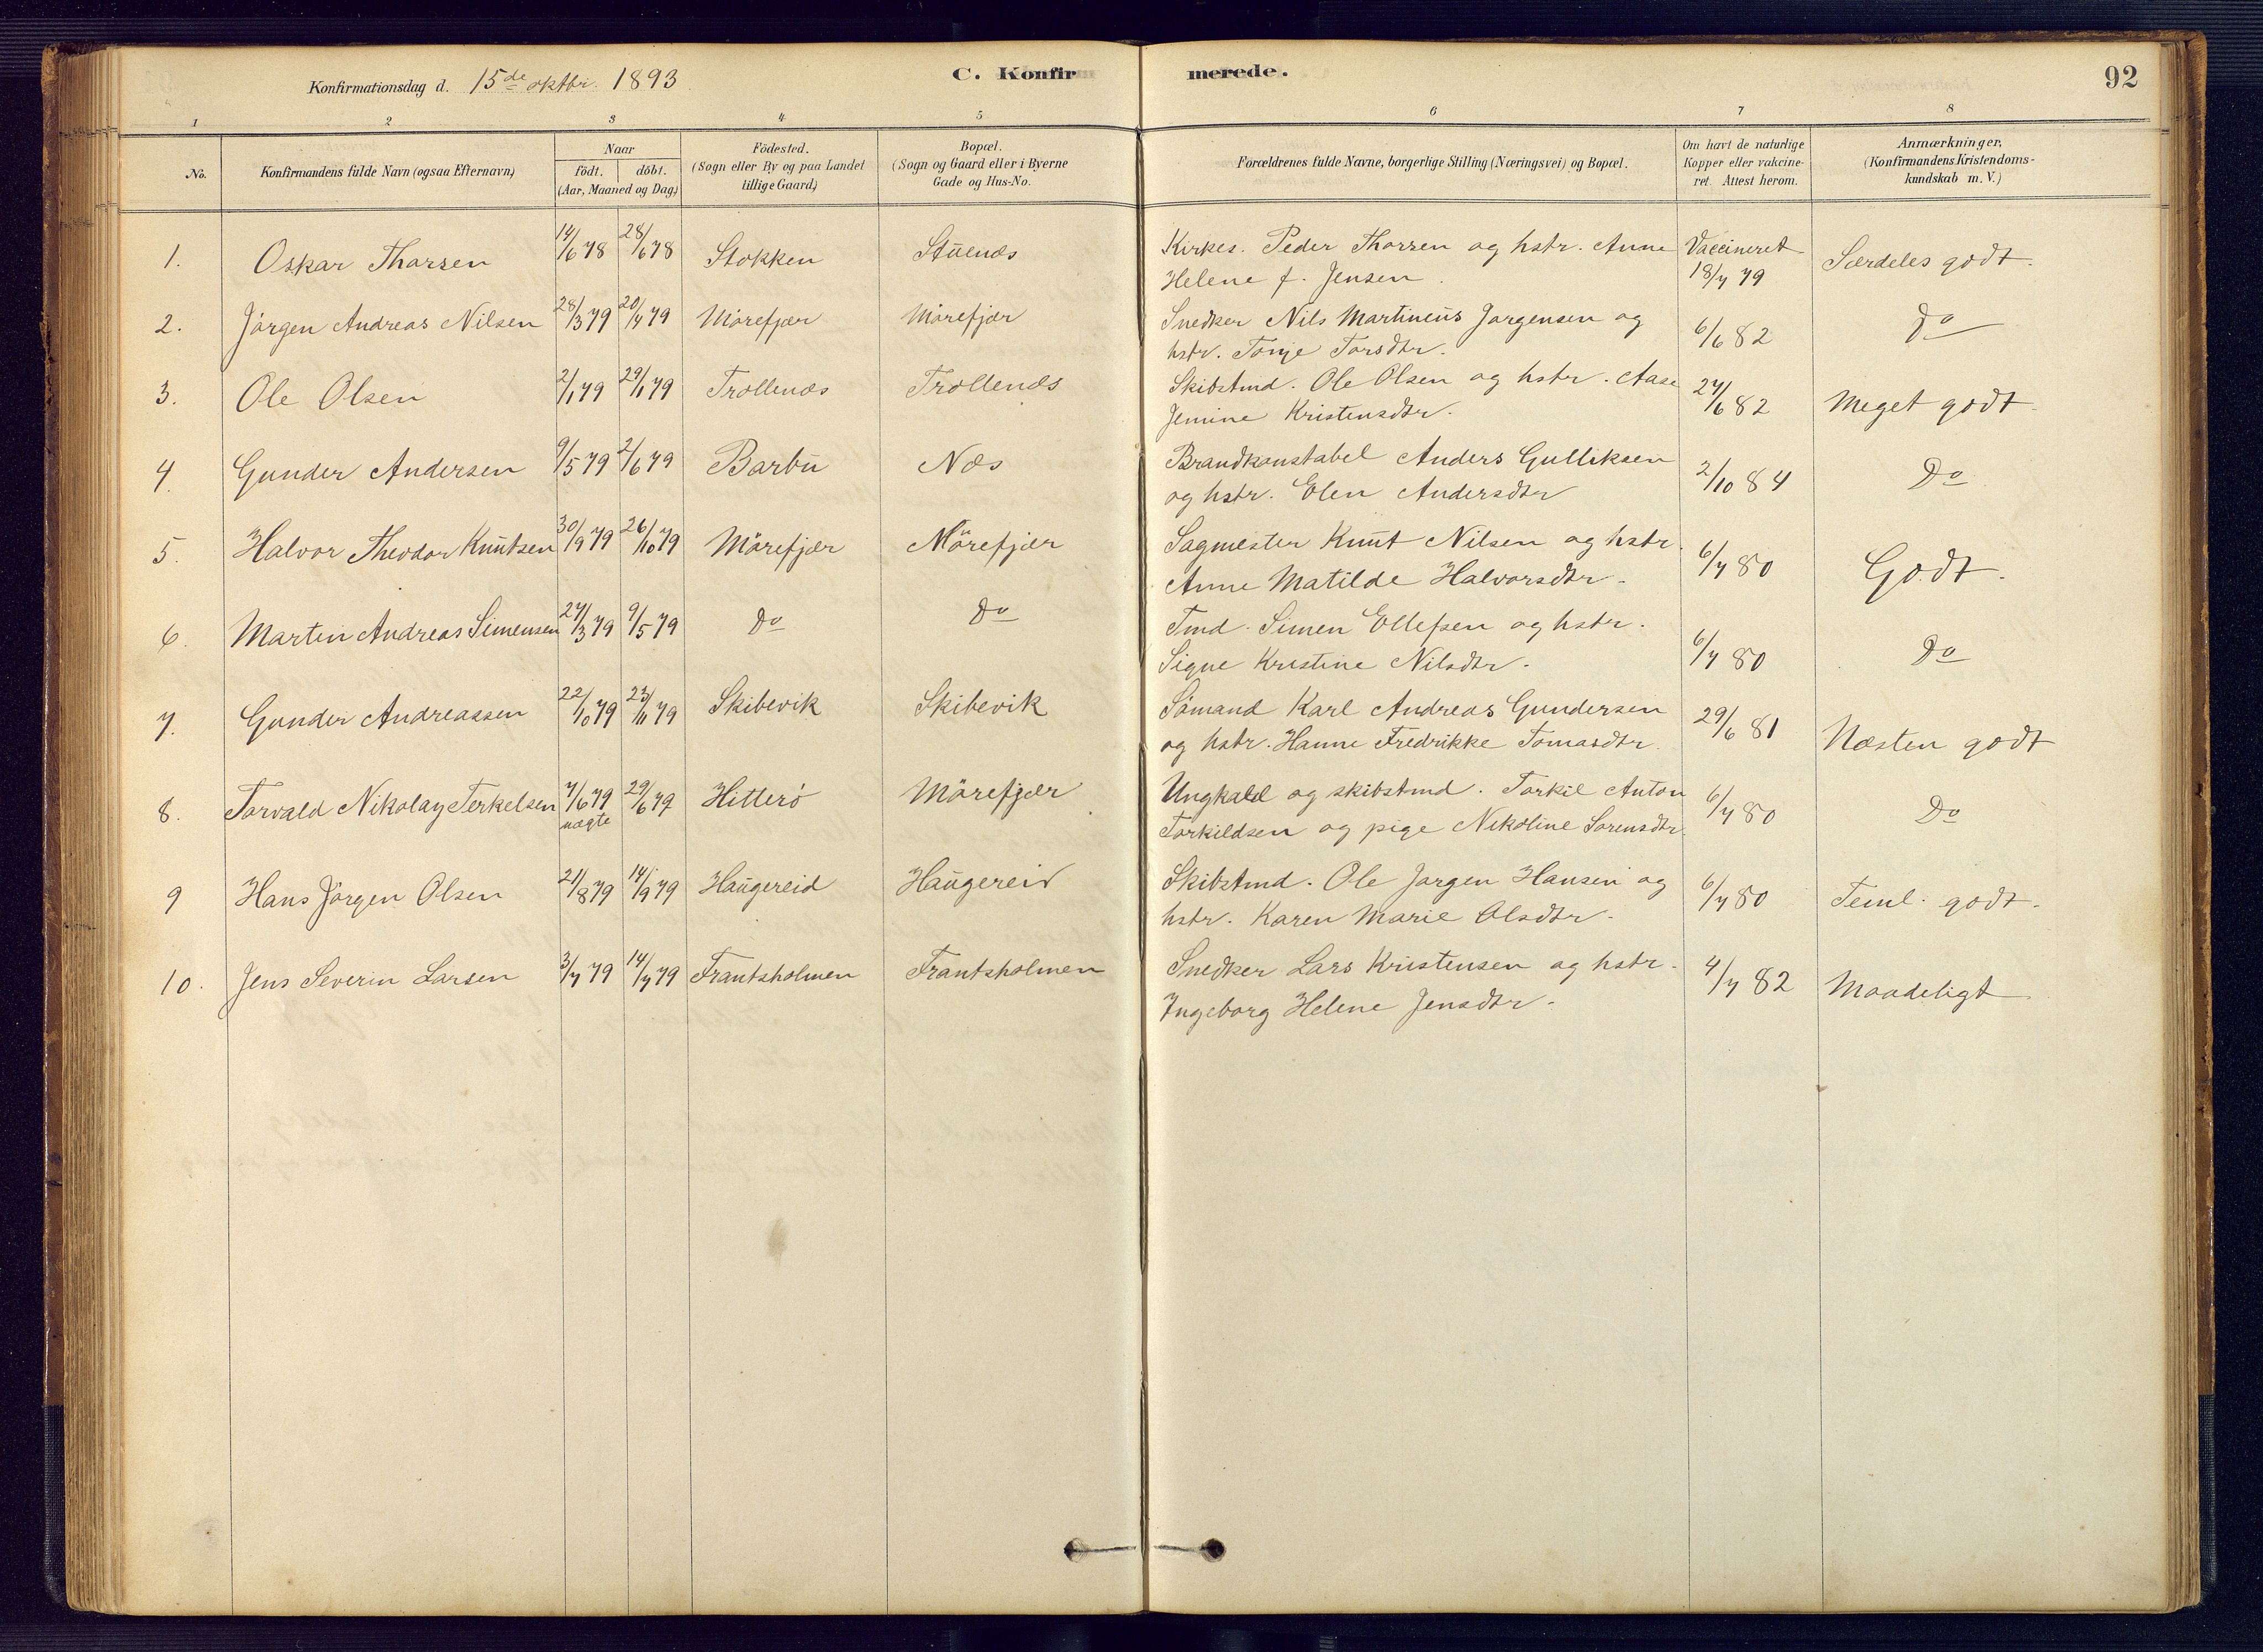 Konfirmationsdag d. 15de oktbr. 1893
C. Konfirmerede.
92
1 2 3 4 5 6 7 8
No.
Konfirmandens fulde Navn (ogsaa Efternavn)
Naar
födt. döbt.
(Aar, Maaned og Dag)
Födested.
(Sogn eller By og paa Landet
tillige Gaard)
Bopæl.
(Sogn og Gaard eller i Byerne
Gade og Hus-No.
Forældrenes fulde Navne, borgerlige Stilling (Næringsvei) og Bopæl.
Om havt de naturlige
Kopper eller vakcine-
ret. Attest herom.
Anmærkninger.
(Konfirmandens Kristendoms-
kundskab m. V.)
1. Oskar Thorsen 14/6 78 28/6 78 Stokken Stuenæs Kirkes. Peder Thorsen og hstr. Anne Vaccineret Særdeles godt.
Helene f. Jensen. 18/7 79
2. Jörgen Andreas Nilsen 28/3 79 20/4 79 Mörefjær Mörefjær Snedker Nils Martineus Jorgensen og 6/6 82 Do
hstr. Tonje Torsdtr.
3. Ole Olsen 2/1 79 29/1 79 Trollenæs Trollenæs Skibstmd. Ole Olsen og hstr. Aase 27/6 82 Meget godt.
Jemine Kristensdtr.
4. Gunder Andersen 9/5 79 2/6 79 Barbu Næs Brandkonstabel Anders Gulliksen 2/10 84 Do
og hstr. Elen Andersdtr
5. Halvor Theodor Knutsen 30/9 79 26/10 79 Mörefjær Mörefjær Sagmester Knut Nilsen og hstr. 6/7 80 Godt.
Anne Matilde Halvorsdtr.
6. Martin Andreas Simensen 27/3 79 9/5 79 Do Do Tmd. Simen Ellefsen og hstr. 6/7 80 Do
Signe Kristine Nilsdtr.
7. Gunder Andreassen 22/10 79 23/11 79 Skibevik Skibevik Sömand Karl Andreas Gundersen 29/6 81 Næsten godt
og hstr. Hanne Fredrikke Tomasdtr.
8. Torvald Nikolay Terkelsen 7/6 79 29/6 79 Hitterö Mörefjær Ungkarl og skibstmd. Torkil Anton 6/7 80 Do
uægte Torkildsen og pige Nikoline Sorensdtr.
9 Hans Jörgen Olsen 21/8 79 14/9 79 Haugereid Haugereid Skibstmd. Ole Jorgen Hansen og 6/7 80 Teml. godt.
hstr. Karen Marie Olsdtr.
10. Jens Severin Larsen 3/7 79 14/7 79 Frantsholmen Frantsholmen Snedker Lars Kristensen og hstr. 4/7 82 Maadeligt
Ingeborg Helene Jensdtr.